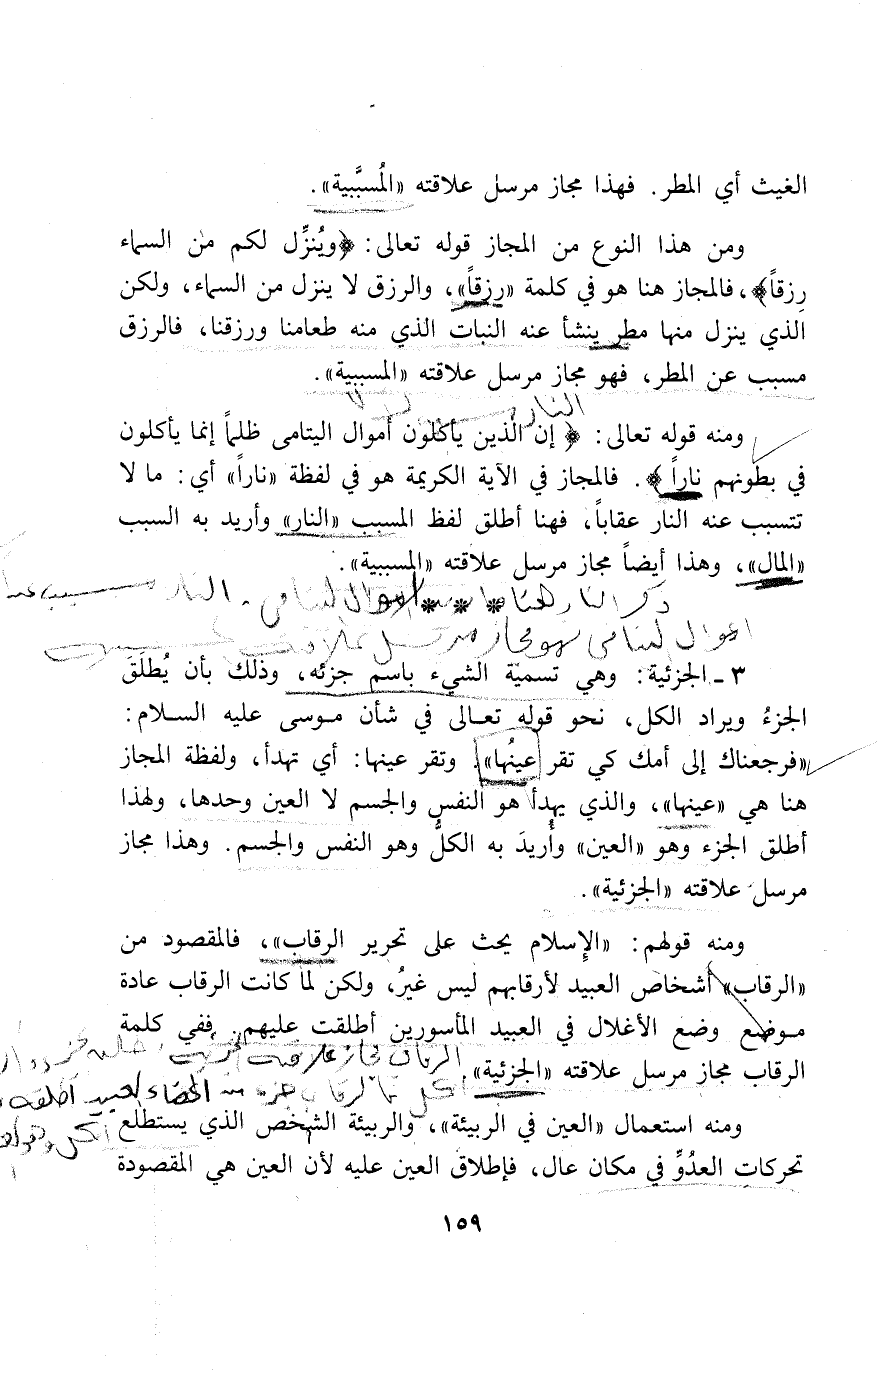 الغيث أي المطر. فهذا مجاز مرسل علاقته «المُسبَّبية».
ومن هذا النوع من المجاز قوله تعالى: ﴿ويُنزِّل لكم من السماء
رِزقاً﴾، فالمجاز هنا هو في كلمة «رزقاً»، والرزق لا ينزل من السماء، ولكن
الذي ينزل منها مطر ينشأ عنه النبات الذي منه طعامنا ورزقنا، فالرزق
مسبب عن المطر، فهو مجاز مرسل علاقته «المسببية».
النار
ومنه قوله تعالى: ﴿إن الذين يأكلون أموال اليتامى ظلماً إنما يأكلون
في بطونهم ناراً﴾. فالمجاز في الآية الكريمة هو في لفظة «ناراً» أي: ما لا
تتسبب عنه النار عقاباً، فهنا أطلق لفظ المسبب «النار» وأريد به السبب
«المال»، وهذا أيضاً مجاز مرسل علاقته «المسببية».
ذكر النار هنا أموال اليتامى النار
* * *
أموال اليتامى هو مجاز مرسل علاقته
٣ - الجزئية: وهي تسمية الشيء باسم جزئه، وذلك بأن يُطلَقَ
الجزءُ ويراد الكل، نحو قوله تعالى في شأن موسى عليه السلام:
«فرجعناك إلى أمك كي تقر عينُها». وتقر عينها: أي تهدأ، ولفظة المجاز
هنا هي «عينها»، والذي يهدأ هو النفس والجسم لا العين وحدها، ولهذا
أطلق الجزء وهو «العين» وأُريدَ به الكلُّ وهو النفس والجسم. وهذا مجاز
مرسل علاقته «الجزئية».
ومنه قولهم: «الإسلام يحث على تحرير الرقاب»، فالمقصود من
«الرقاب» أشخاص العبيد لأرقابهم ليس غيرُ، ولكن لما كانت الرقاب عادة
موضع وضع الأغلال في العبيد المأسورين أطلقت عليهم. ففي كلمة
الرقاب مجاز علاقته
الرقاب مجاز مرسل علاقته «الجزئية».
ومنه استعمال «العين في الربيئة»، والربيئة الشخص الذي يستطلع
تحركات العدُوِّ في مكان عال، فإطلاق العين عليه لأن العين هي المقصودة
١٥٩